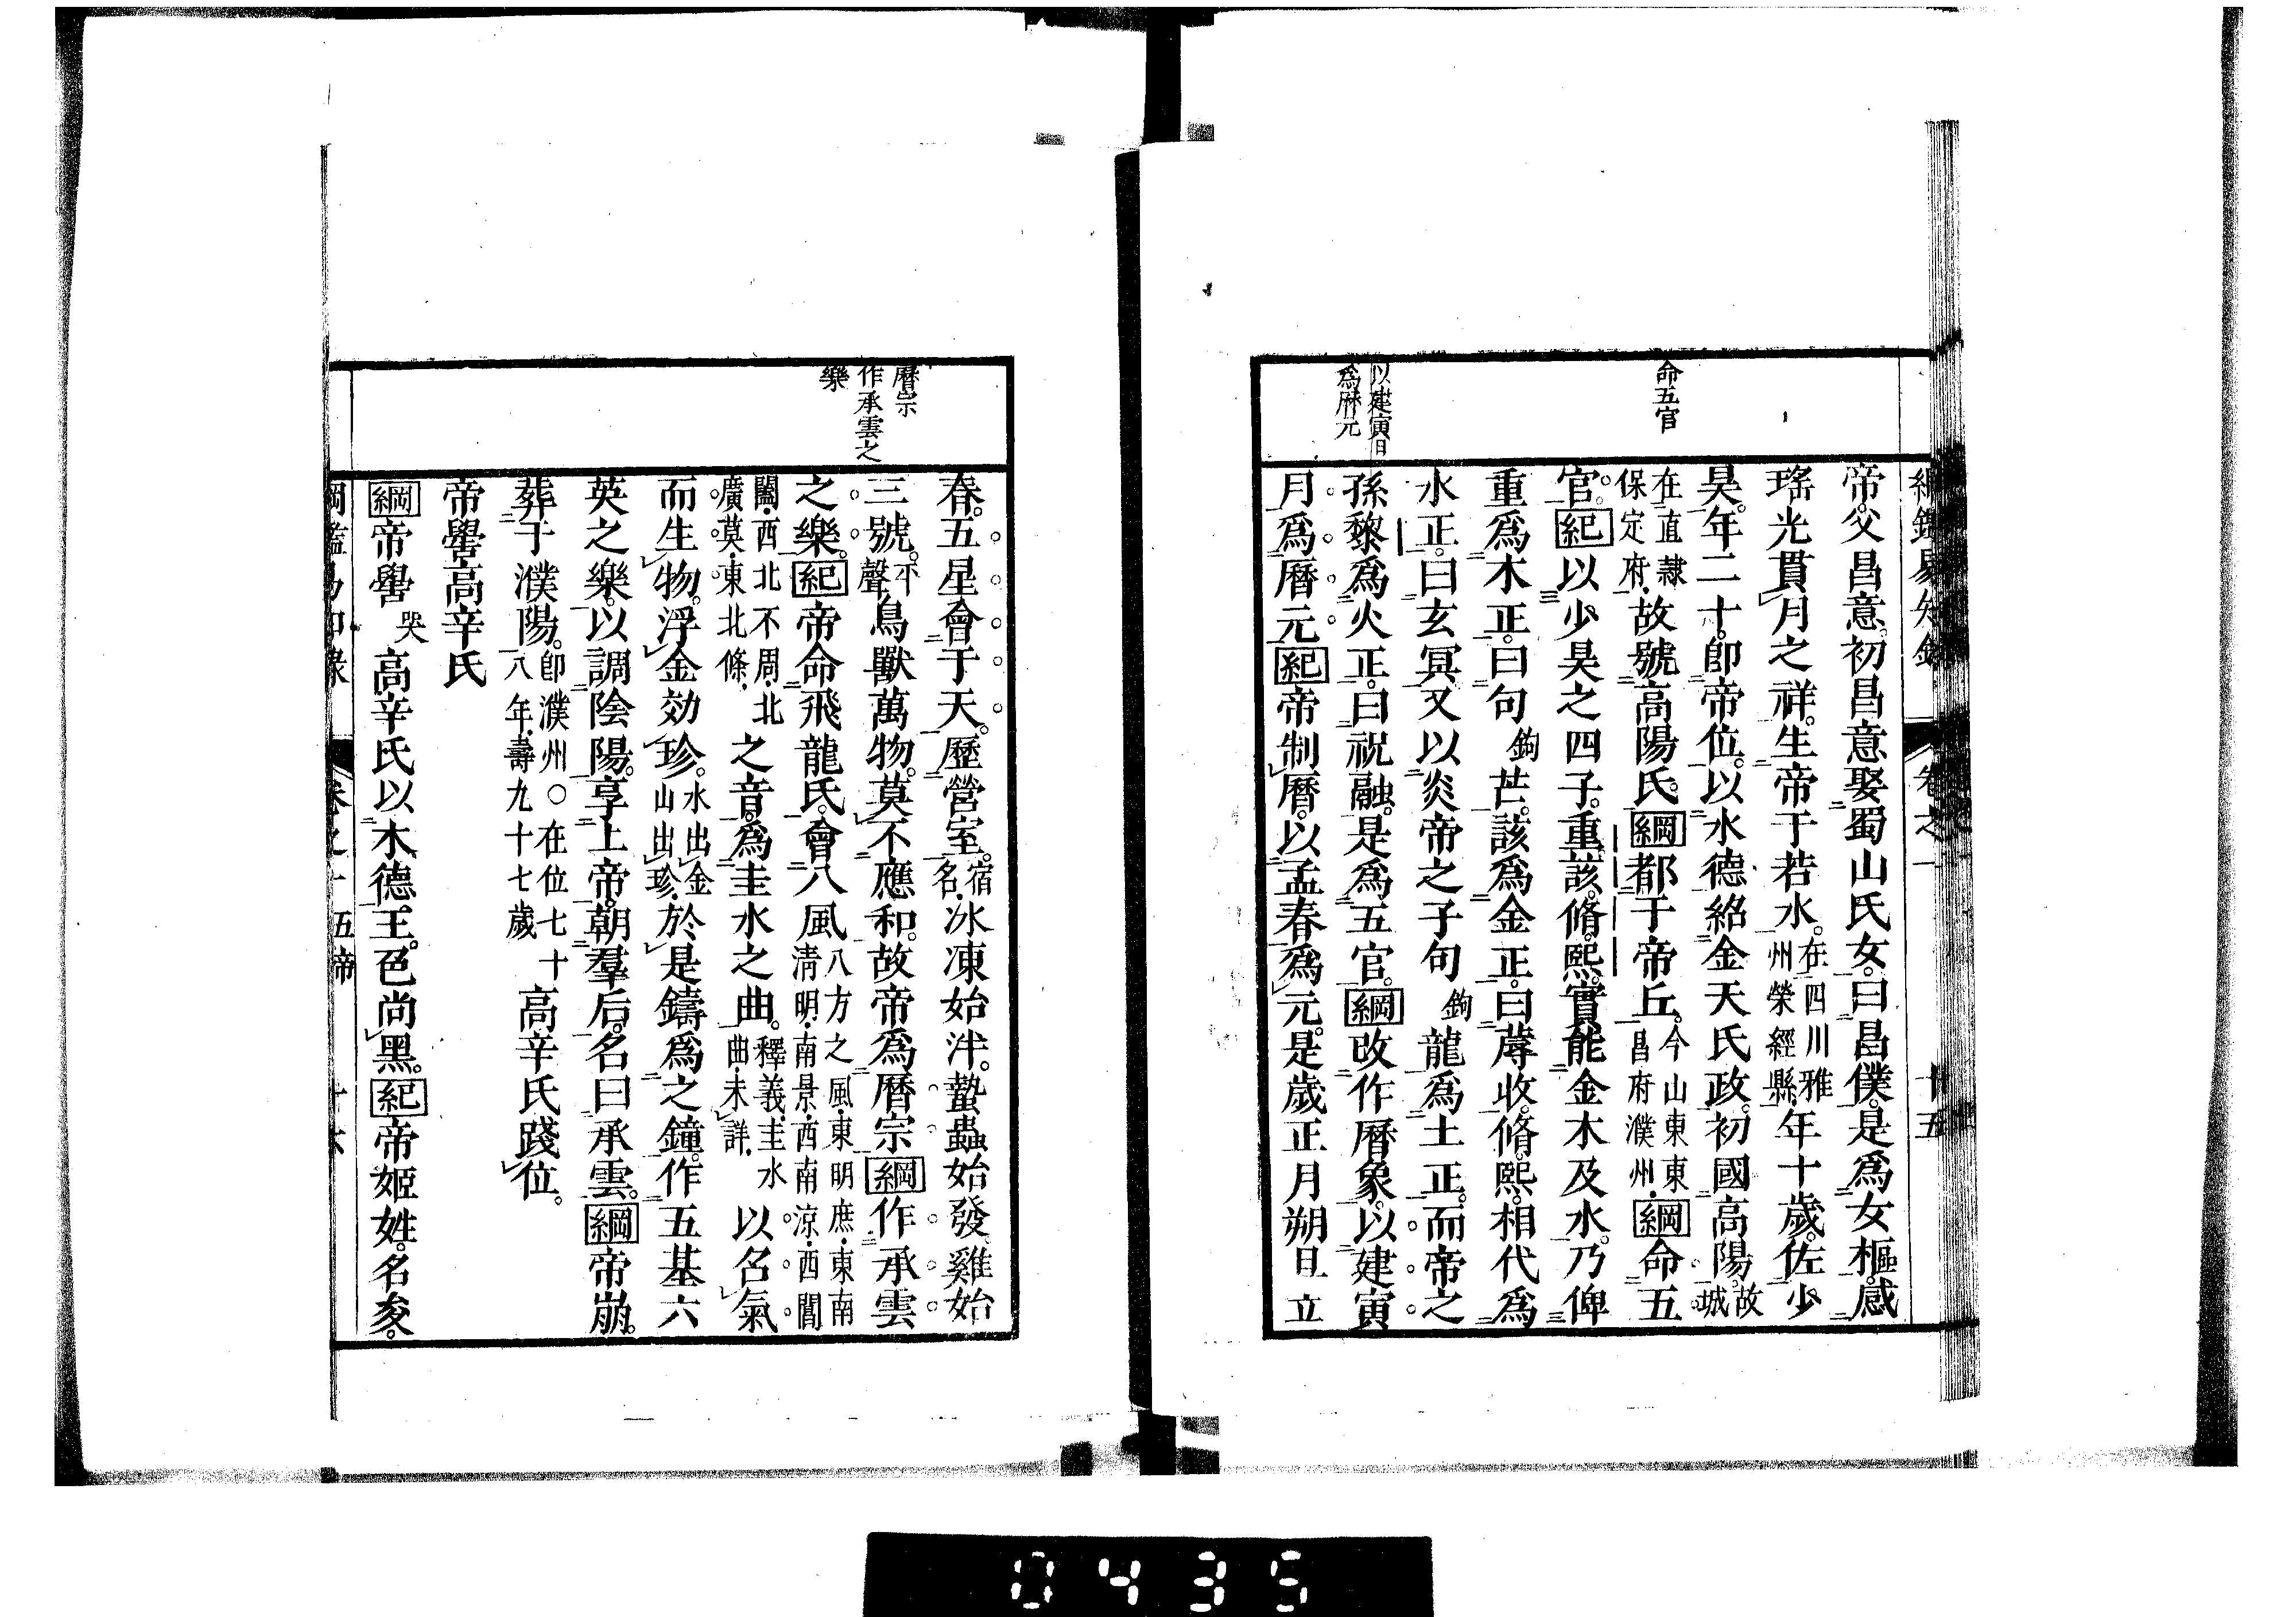 命五官
以建寅月
為曆元
帝。父昌意。初昌意娶蜀山氏女。曰昌僕。是爲女樞。感
瑤光貫月之祥。生帝于若水。在四川雅州榮經縣。年十歲。佐少
昊。年二十。卽帝位。以水德紹金天氏政。初國高陽。故城
在直隸保定府。故號高陽氏。綱都于帝丘。今山東東昌府濮州。綱命五
官。紀以少昊之四子。重。該。脩。熙。實能金木及水。乃俾
重爲木正。曰句鉤芒。該爲金正。曰蓐收。脩。熙。相代爲
水正。曰玄冥。又以炎帝之子句鉤龍爲土正。而帝之
孫黎爲火正。曰祝融。是爲五官。綱改作曆象。以建寅
月爲曆元。紀帝制曆。以孟春爲元。是歲正月朔旦立
曆宗
作承雲之
樂
春。五星會于天。歷營室。宿名。冰凍始泮。蟄蟲始發。雞始
三號。平聲鳥獸萬物。莫不應和。故帝爲曆宗。綱作承雲
之樂。紀帝命飛龍氏。會八風八方之風。東明庶。東南清明。南景。西南涼。西閶
闔。西北不周。北廣莫。東北條。之音。爲圭水之曲。釋義。圭水曲。未詳。以名氣
而生物。浮金効珍。水出金山出珍。於是鑄爲之鐘。作五基六
英之樂。以調陰陽。享上帝。朝羣后。名曰承雲。綱帝崩。
葬于濮陽。卽濮州〇在位七十八年。壽九十七歲高辛氏踐位。
帝嚳高辛氏
綱帝嚳哭高辛氏以木德。王。色尚黑。紀帝姬姓。名夋。